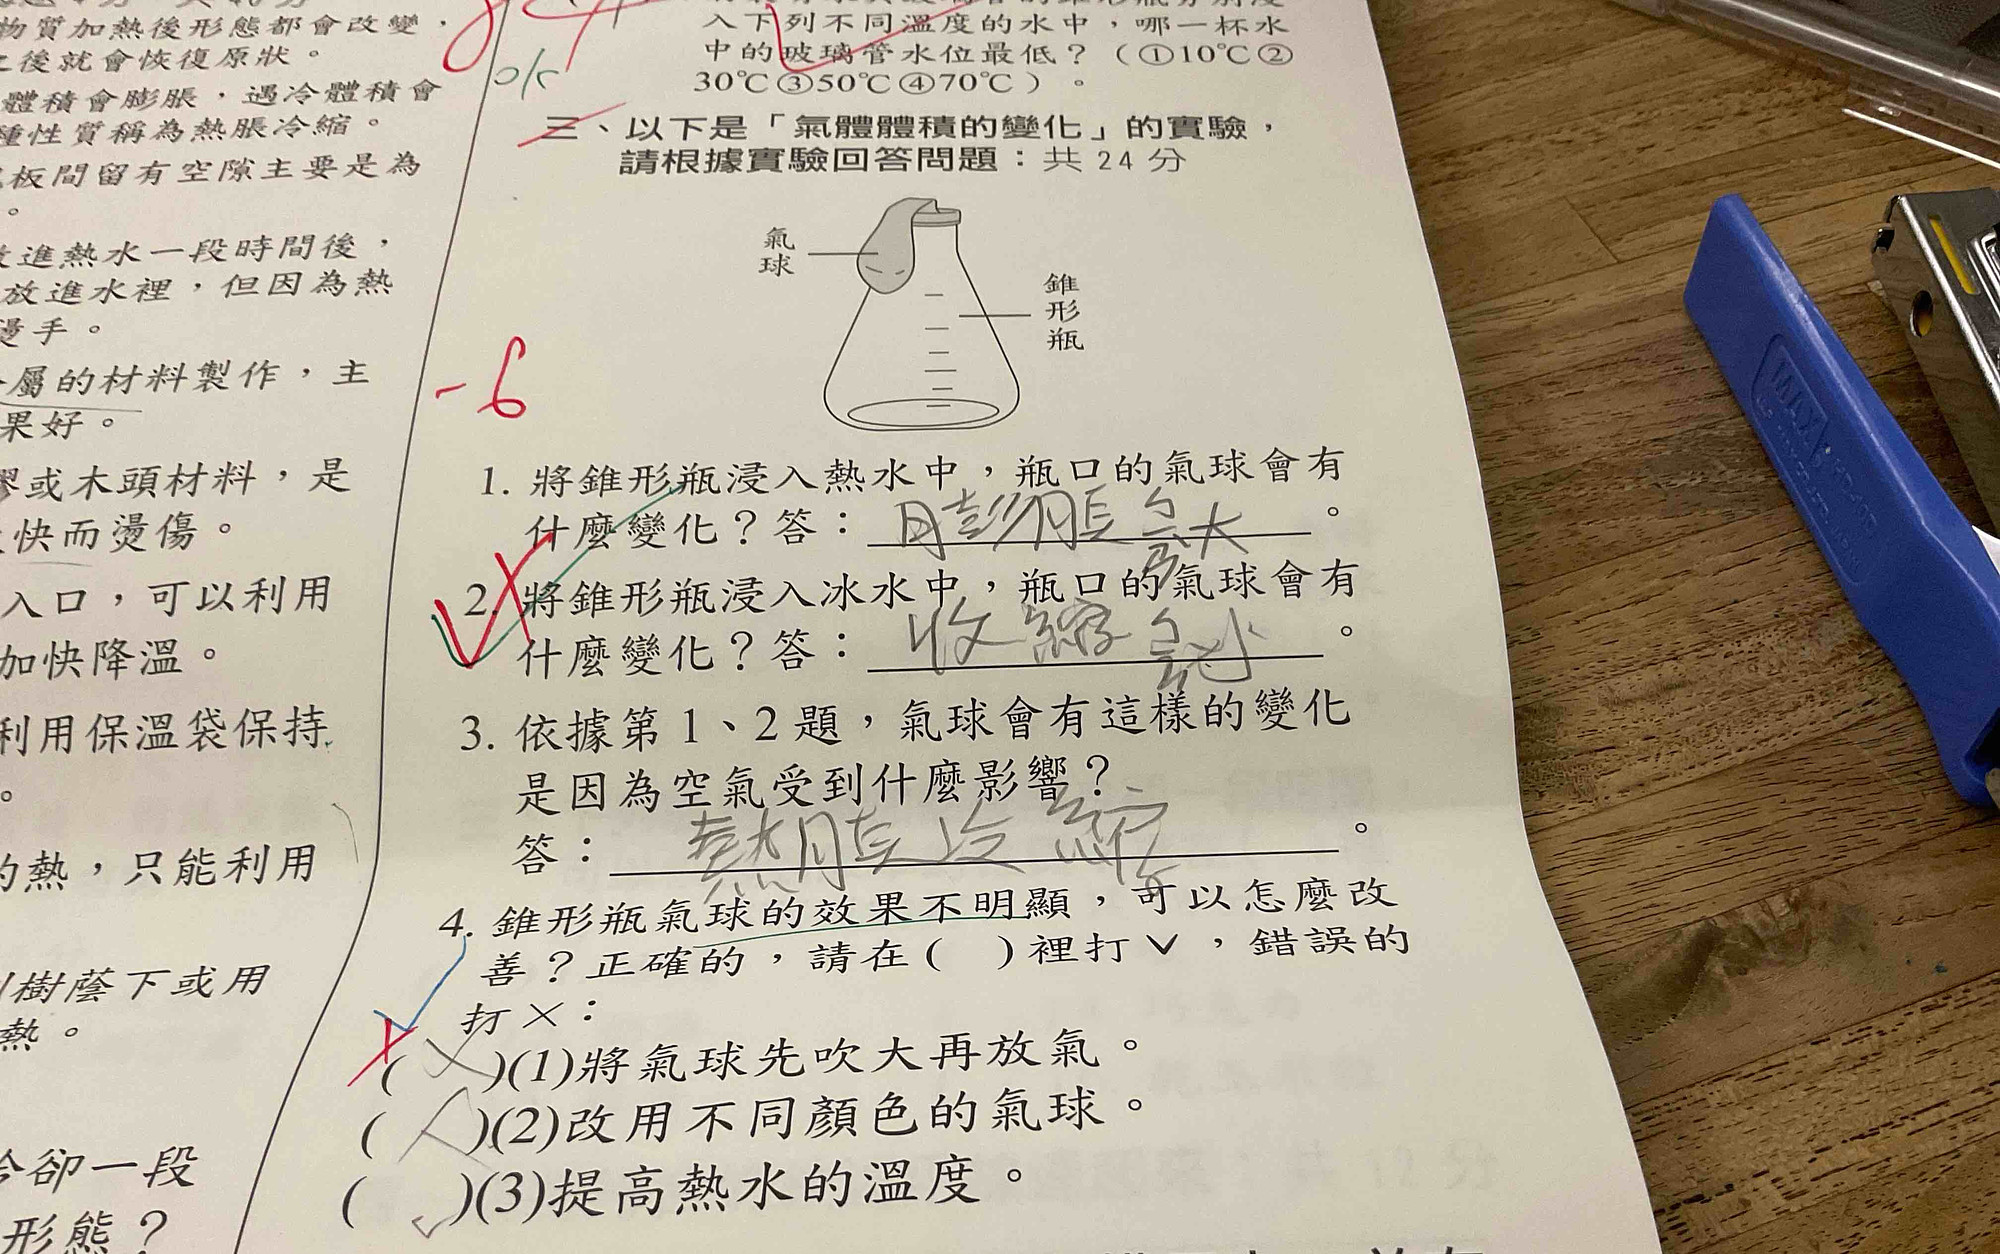 物質加熱後形態都會改變，
之後就會恢復原狀。
體積會膨脹，遇冷體積會
種性質稱為熱脹冷縮。
板間留有空隙主要是為
。
進熱水一段時間後，
放進水裡，但因為熱
燙手。
屬的材料製作，主
果好。
膠或木頭材料，是
快而燙傷。
入口，可以利用
加快降溫。
利用保溫袋保持
。
的熱，只能利用
樹蔭下或用
熱。
冷卻一段
形態？
入下列不同溫度的水中，哪一杯水
中的玻璃管水位最低？（①10℃②
30℃③50℃④70℃）。
三、以下是「氣體體積的變化」的實驗，
請根據實驗回答問題：共 24 分
氣球
錐形瓶
-6
1. 將錐形瓶浸入熱水中，瓶口的氣球會有
什麼變化？答：膨脹變大。
2. 將錐形瓶浸入冰水中，瓶口的氣球會有
什麼變化？答：收縮變小。
3. 依據第 1、2 題，氣球會有這樣的變化
是因為空氣受到什麼影響？
答：熱脹冷縮。
4. 錐形瓶氣球的效果不明顯，可以怎麼改
善？正確的，請在（ ）裡打∨，錯誤的
打×：
(×)(1)將氣球先吹大再放氣。
(×)(2)改用不同顏色的氣球。
(✓)(3)提高熱水的溫度。
MAX